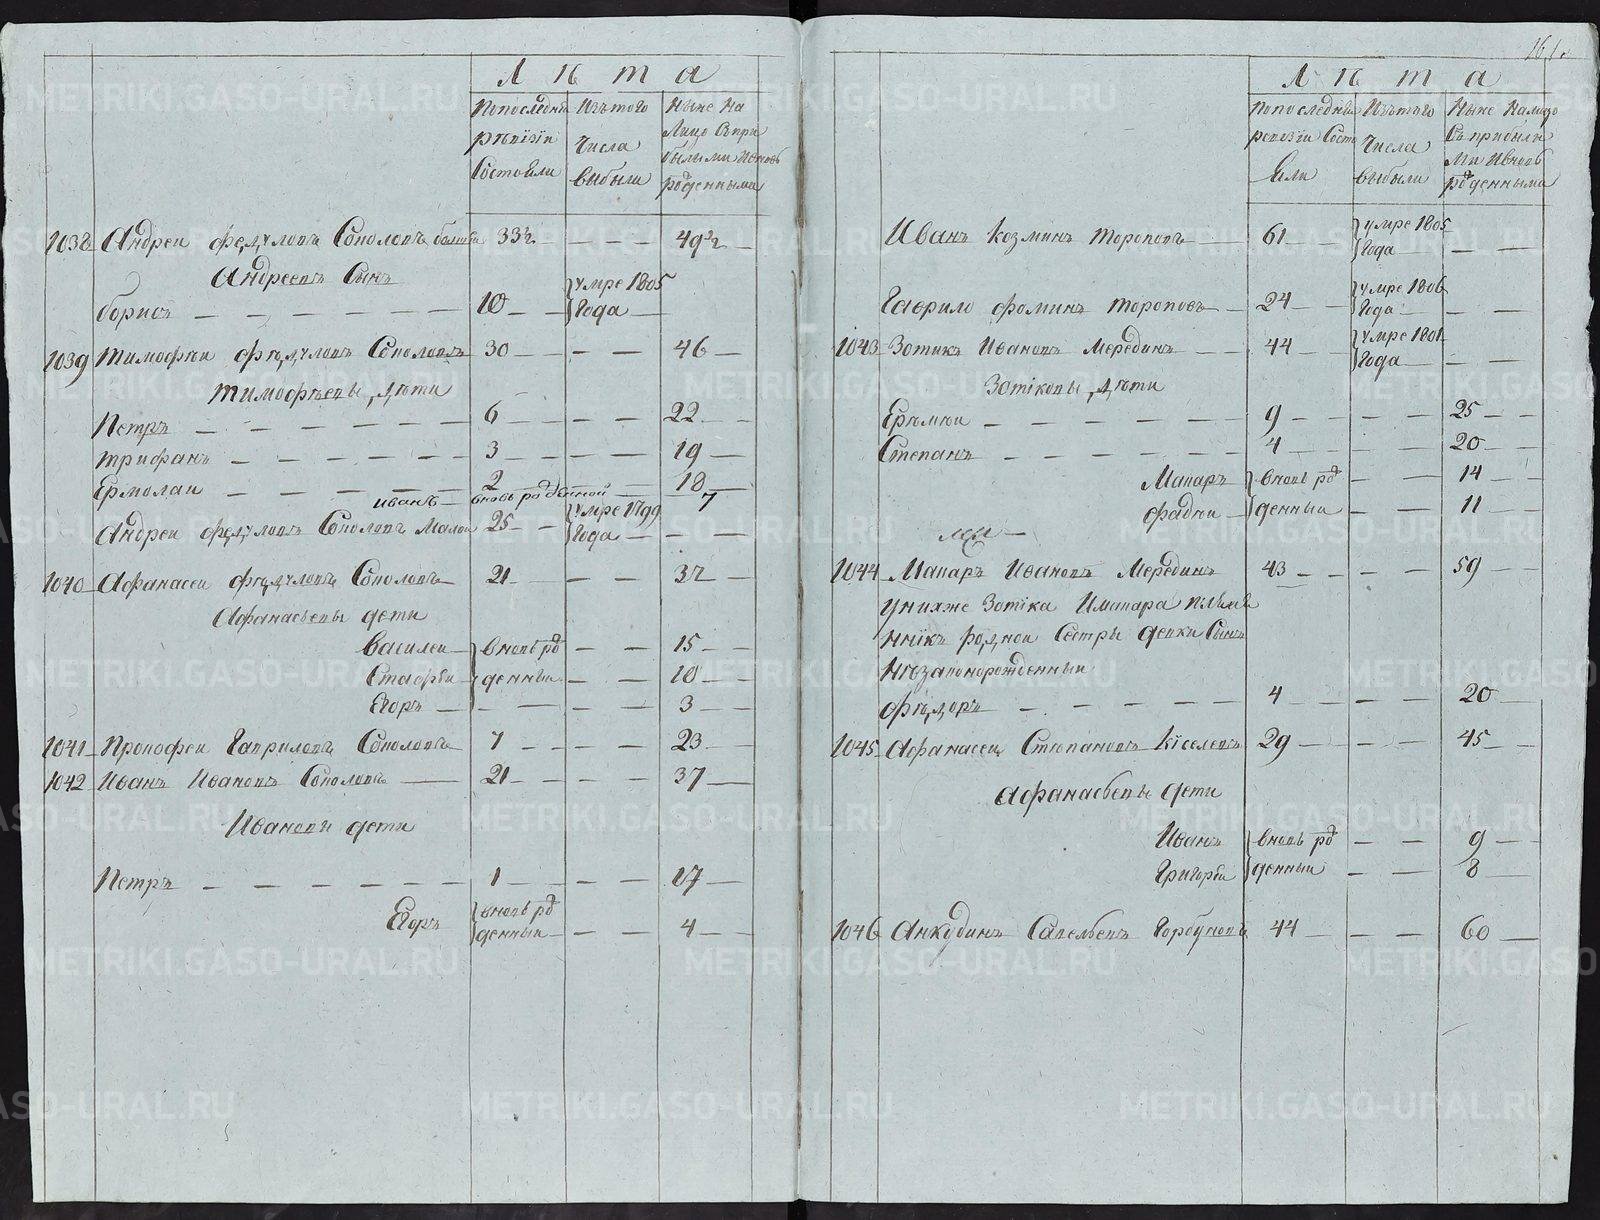 Лѣта
По последней ревизїи состояли
Изъ того числа выбыли
Ныне на лицо с прибылыми и вновь рожденными
1038 Андреи федуловъ Соколовъ 33½ — — 49½
Андреевъ Сынъ
борисъ — 10 — умре 1805 года —
1039 тимофѣи федуловъ Соколовъ 30 — — 46
тимофѣевы дѣти
Петръ — 6 — — 22
трифанъ — 3 — — 19
Ермолаи — 2 — — 18
иванъ — вновь рожденной — 7
Андреи федуловъ Соколовъ малои 25 — умре 1799 года — —
1040 Афанасеи федуловъ Соколовъ 21 — — 37
Афанасьевы дети
Василеи — вновь рожденныи — — 15
Стафеи — — — 10
Егоръ — — — 3
1041 Прокофеи Гавриловъ Соколовъ 7 — — 23
1042 Иванъ Ивановъ Соколовъ 21 — — 37
Ивановы дети
Петръ — 1 — — 17
Егоръ вновь рожденныи — — 4
Лѣта
По последней ревизїи состояли
Изъ того числа выбыли
Ныне на лицо с прибылыми и вновь рожденными
Иванъ Козминъ тороповъ 61 — умре 1805 года — —
Гаврило фоминъ тороповъ 24 — умре 1806 года — —
1043 Зотикъ Ивановъ Мерединъ 44 — умре 1801 года — —
Зотïковы дѣти
Ерѣмѣи — 9 — — 25
Степанъ — 4 — — 20
Макаръ вновь рожденныи — — 14
фадѣи — — 11
1044 Макаръ Ивановъ Мерединъ 43 — — 59
у нихже Зотïка и Макара племя
ннïкъ родной Сестры девки Сынъ
нѣзаконорожденныи
фѣдоръ — 4 — — 20
1045 Афанасеи Стѣпановъ Кїселевъ 29 — — 45
Афанасьевы дети
Иванъ вновь рожденныи — — 9
Григорьи — — 8
1046 Анкудинъ Савельевъ Горбуновъ 44 — — 60
METRIKI.GASO-URAL.RU